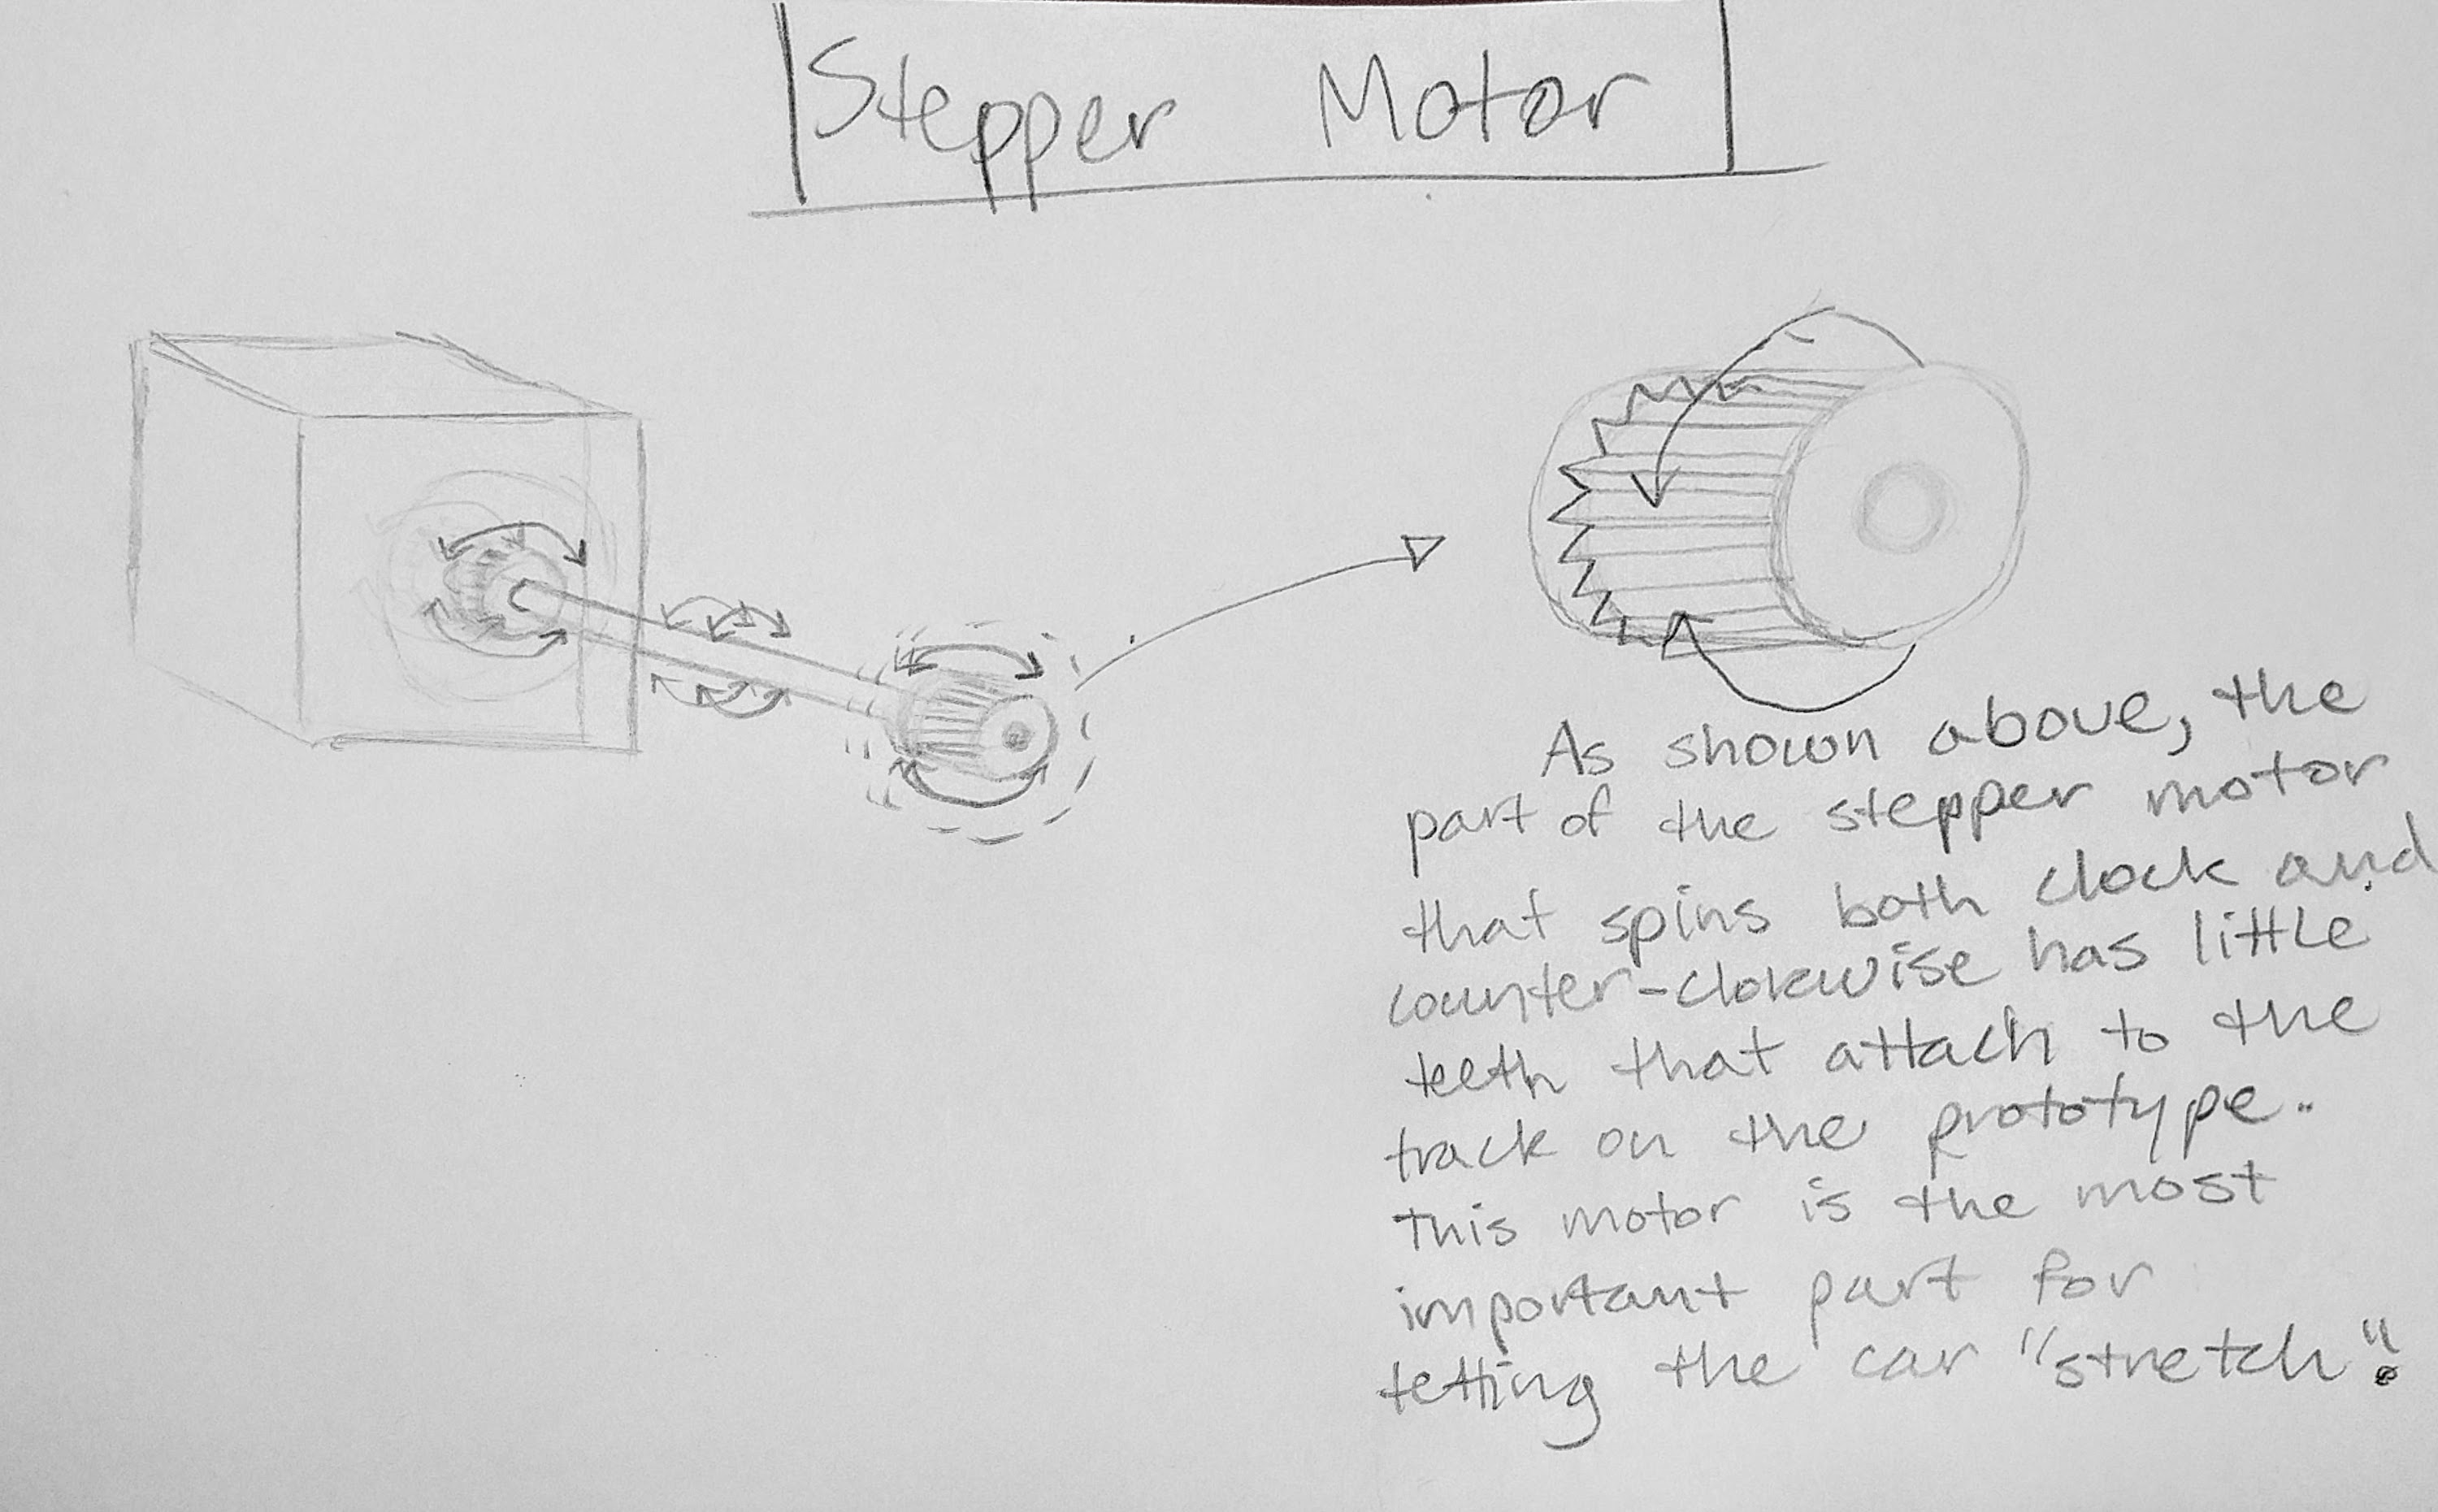 Stepper Motor
As shown above, the
part of the stepper motor
that spins both clock and
counter-clokwise has little
teeth that attach to the
track on the prototype.
This motor is the most
important part for
tetting the car "stretch".